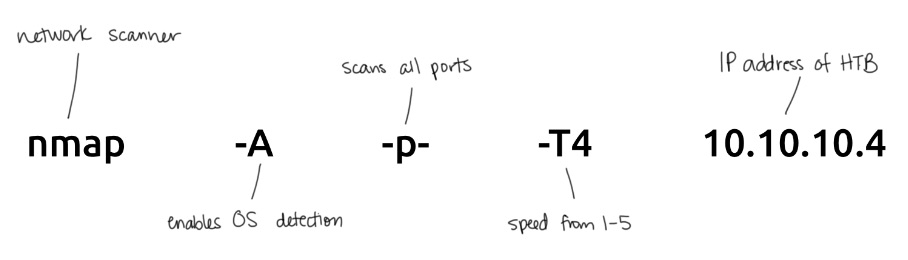 network scanner
scans all ports
IP address of HTB
nmap -A -p- -T4 10.10.10.4
enables OS detection
speed from 1-5